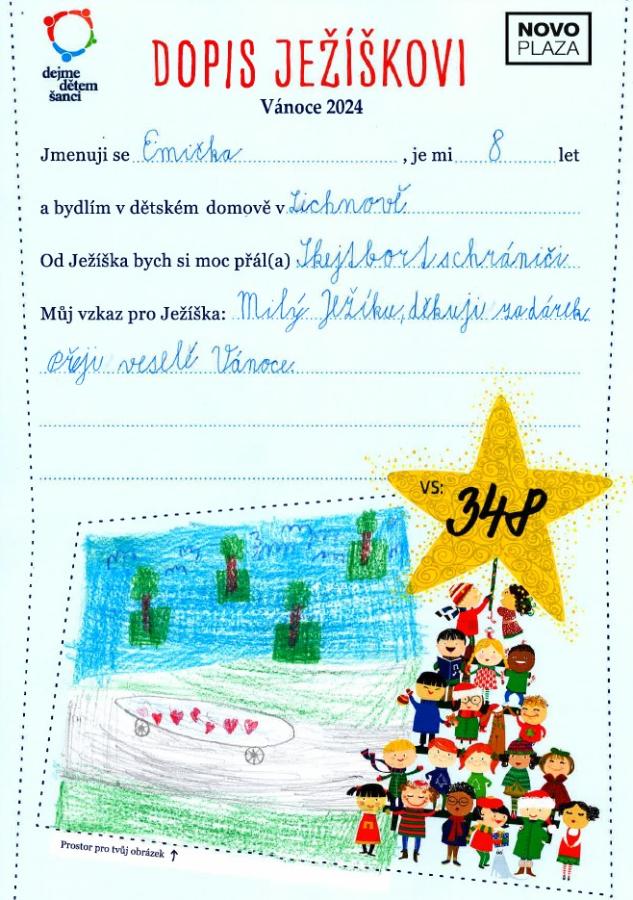 dejme
dětem
šanci
DOPIS JEŽÍŠKOVI
NOVO
PLAZA
Vánoce 2024
Jmenuji se Emička, je mi 8 let
a bydlím v dětském domově v Lichnově
Od Ježíška bych si moc přál(a) Skejtbort schrániči
Můj vzkaz pro Ježíška: Milý Ježíku, děkuji za dárek
přeji veselé Vánoce.
VS: 348
Prostor pro tvůj obrázek ↑